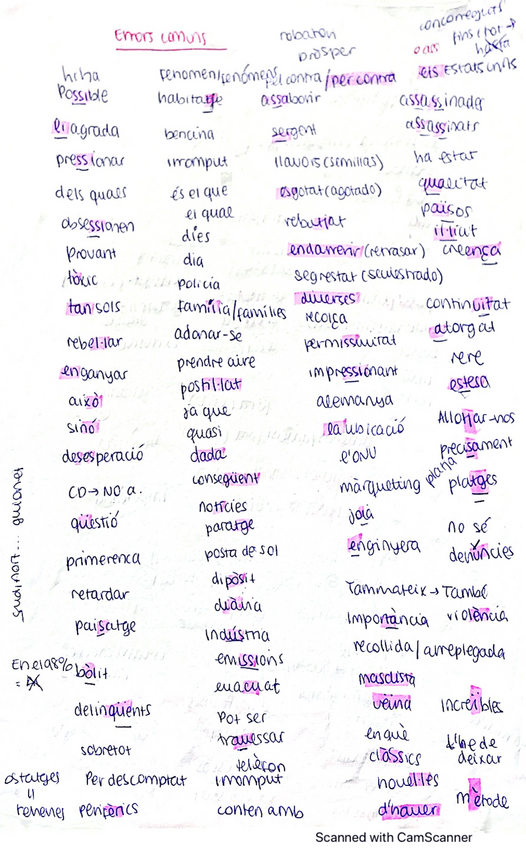 Errors comuns
robatori
pròsper
els Estats units
hi ha
fenomen/fenòmens
pel contra/per contra
Possible
habitatge
assaborir
assassinader
li agrada
bencina
sergent
assassinats
pressionar
irromput
llavors (semillas)
ha estat
dels quals
és el que
esgotat (agotado)
qualitat
el qual
països
obsessionen
dies
rebutjat
il·liat
Provant
dia
endarrerir (retrasar)
creença
tòxic
policia
segrestat (secuestrado)
tan sols
família/famílies
diverses
continuïtat
recolça
atorgat
rebel·lar
adonar-se
permissivitat
rere
enganyar
prendre aire
impressionant
estesa
això
postil·lat
alemanya
sinó
ja que
Allotjar-nos
quasi
la ubicació
precisament
desesperació
dada
l'ONU
plana
CD → NO a.
conseqüent
màrqueting
platges
notícies
joià
qüestió
paratge
no sé
primerenca
posta de sol
enginyera
denúncies
retardar
dipòsit
Tammateix → També
diària
paisatge
Importància
violència
Indústria
recollida / arreplegada
En el 98%
bòlit
emissions
masclista
evacuat
delinqüents
veïna
increïbles
Pot ser
sobretot
travessar
en què
d'he de
deixar
telèfon
clàssics
ostatges
Per descomptat
irromput
novel·les
mètode
rehenes
perifèrics
conten amb
d'haver
gudinot... guionet
Scanned with CamScanner